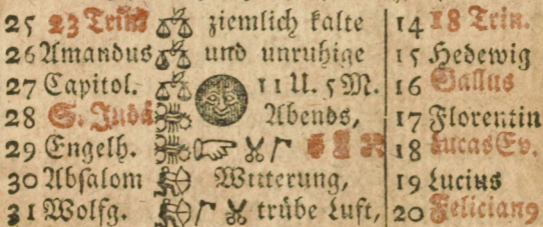 25 23 Trin. ziemlich kalte 14 18 Trin.
26 Amandus und unruhige 15 Hedewig
27 Capitol. 11 U. 5 M. 16 Gallus
28 S. Judä Abends, 17 Florentin
29 Engelh. 18 Lucas Ev.
30 Absalom Witterung, 19 Lucius
31 Wolfg. trübe Luft, 20 Felician9